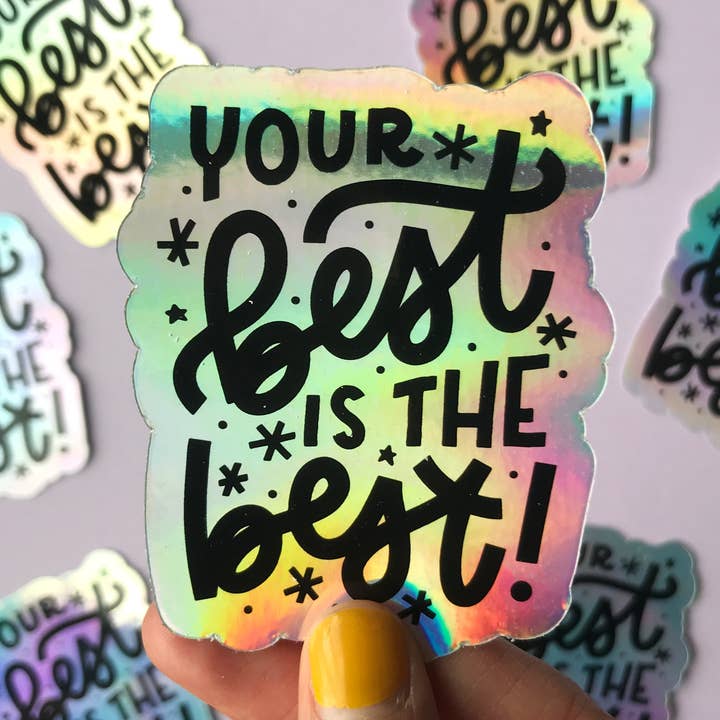 YOUR
best
IS THE
best!